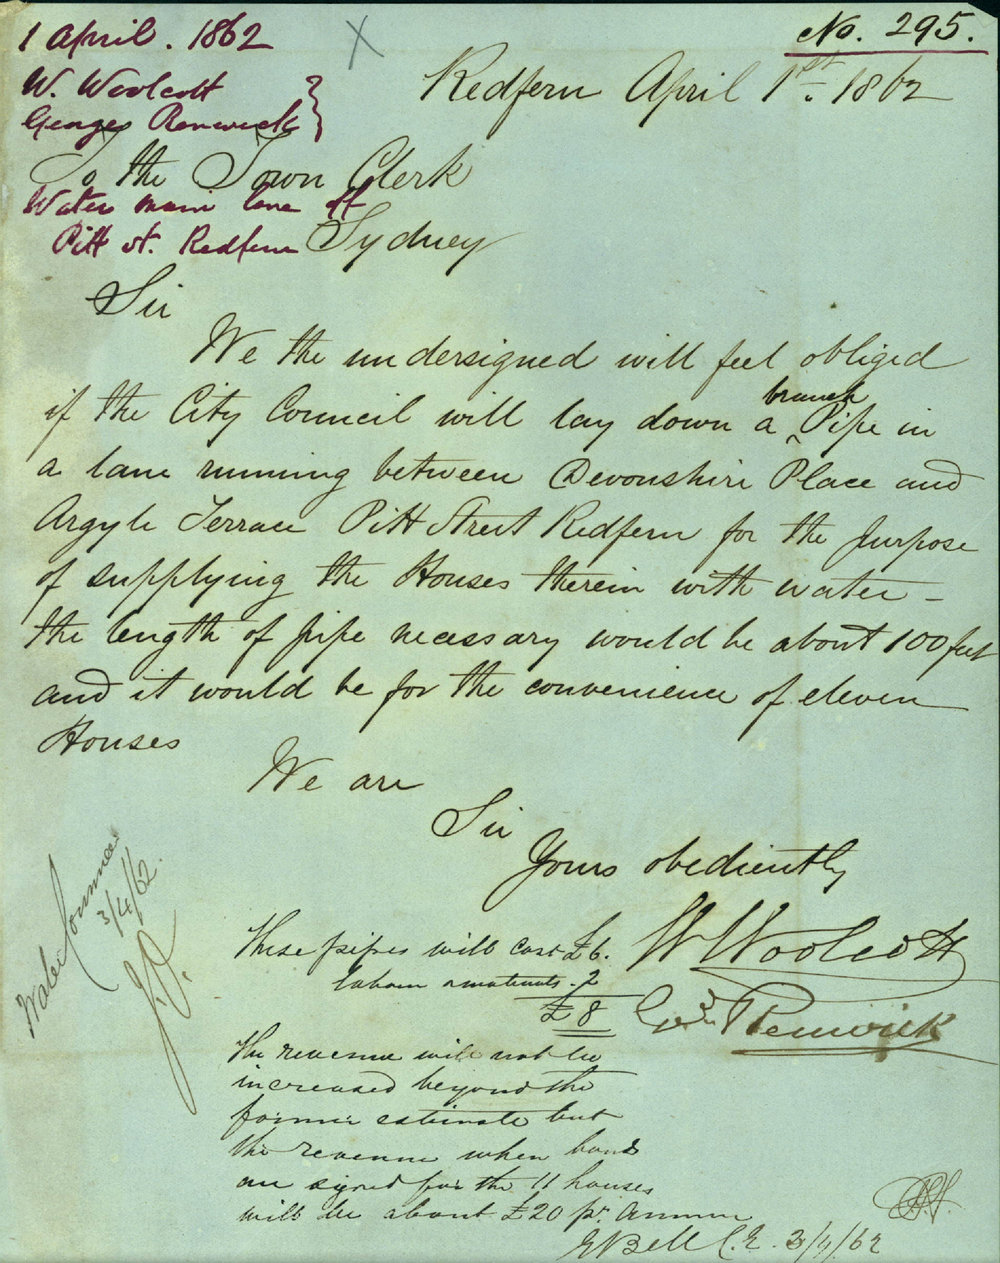 1 April. 1862
No. 295.
W. Woolcott
George Renwick
Water main lane off
Pitt St. Redfern
Redfern April 1st. 1862
To the Town Clerk
Sydney
Sir
We the undersigned will feel obliged
if the City Council will lay down a branch Pipe in
a lane running between Devonshire Place and
Argyle Terrace Pitt Street Redfern for the purpose
of supplying the Houses therein with water -
the length of pipe necessary would be about 100 feet
and it would be for the convenience of eleven
Houses
We are
Sir
Yours obediently
W Woolcott
Geo. Renwick
Water Committee
3/4/62
These pipes will cost £6.
labour & materials. 2
£8
The revenue will not be
increased beyond the
former estimate but
the revenue when bonds
are signed for the 11 houses
will be about £20 pr. annum
E Bell C.E. 3/4/62